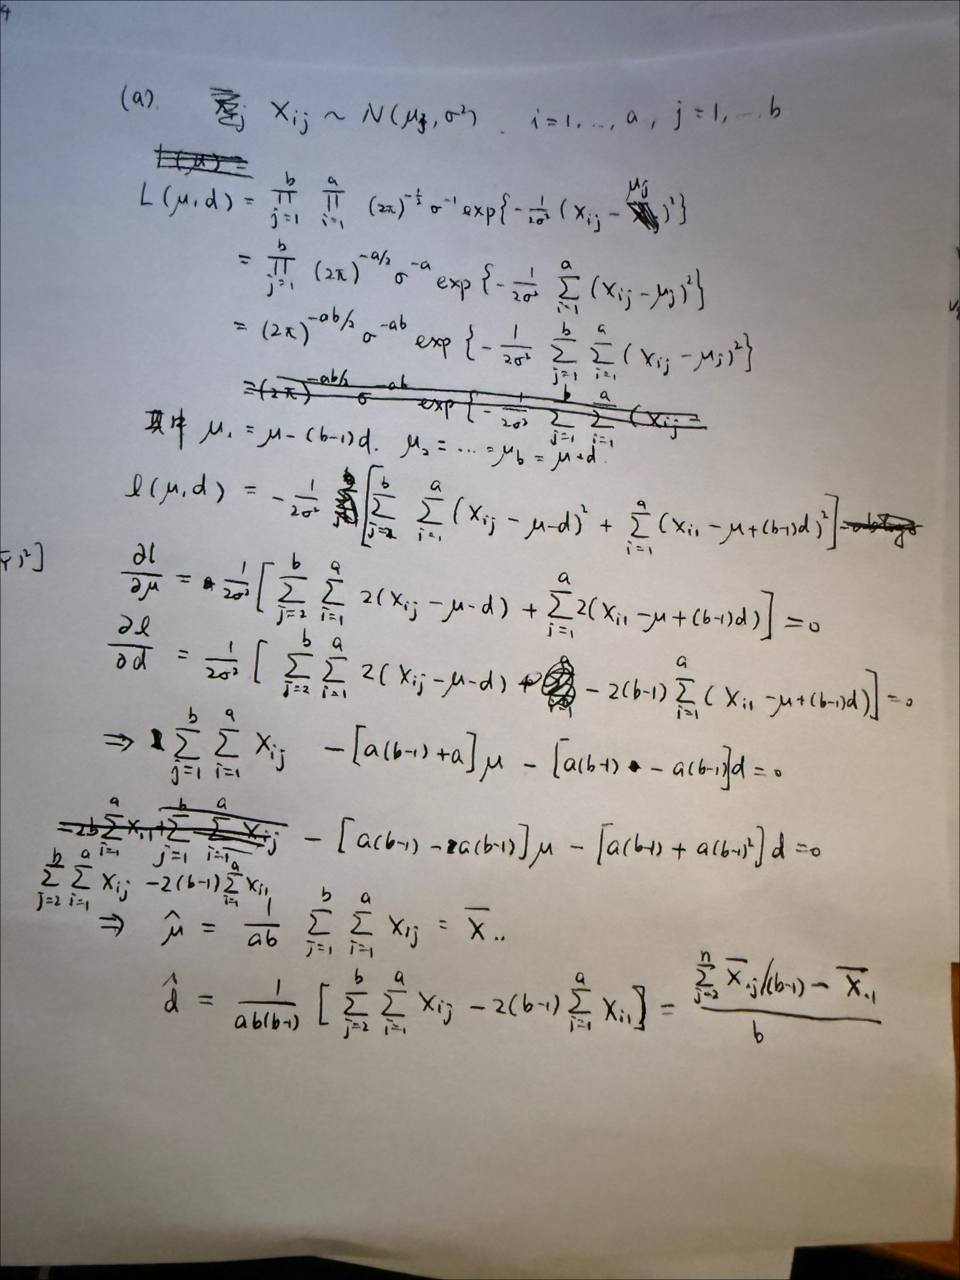 (a). X_{ij} ~ N(μ_j, σ²). i=1,..., a, j=1,...b
L(μ,d) = ∏_{j=1}^{b} ∏_{i=1}^{a} (2π)^{-1/2} σ^{-1} exp{-1/2σ² (X_{ij} - μ_j)²}
= ∏_{j=1}^{b} (2π)^{-a/2} σ^{-a} exp{-1/2σ² ∑_{i=1}^{a} (X_{ij} - μ_j)²}
= (2π)^{-ab/2} σ^{-ab} exp{-1/2σ² ∑_{j=1}^{b} ∑_{i=1}^{a} (X_{ij} - μ_j)²}
其中 μ_1 = μ-(b-1)d. μ_2 = ... = μ_b = μ+d.
l(μ,d) = -1/2σ² [∑_{j=2}^{b} ∑_{i=1}^{a} (X_{ij} - μ-d)² + ∑_{i=1}^{a} (X_{i1} - μ+(b-1)d)²]
∂l/∂μ = 1/2σ² [∑_{j=2}^{b} ∑_{i=1}^{a} 2(X_{ij} - μ-d) + ∑_{i=1}^{a} 2(X_{i1} - μ+(b-1)d)] = 0
∂l/∂d = 1/2σ² [∑_{j=2}^{b} ∑_{i=1}^{a} 2(X_{ij} - μ-d) - 2(b-1) ∑_{i=1}^{a} (X_{i1} - μ+(b-1)d)] = 0
⇒ ∑_{j=1}^{b} ∑_{i=1}^{a} X_{ij} - [a(b-1)+a]μ - [a(b-1) - a(b-1)]d = 0
- [a(b-1) - a(b-1)]μ - [a(b-1) + a(b-1)²]d = 0
∑_{j=2}^{b} ∑_{i=1}^{a} X_{ij} - 2(b-1) ∑_{i=1}^{a} X_{i1}
⇒ μ̂ = 1/ab ∑_{j=1}^{b} ∑_{i=1}^{a} X_{ij} = X̄..
d̂ = 1/ab(b-1) [∑_{j=2}^{b} ∑_{i=1}^{a} X_{ij} - 2(b-1) ∑_{i=1}^{a} X_{i1}] = (∑_{j=2}^{n} X̄_{·j}/(b-1) - X̄_{·1})/b